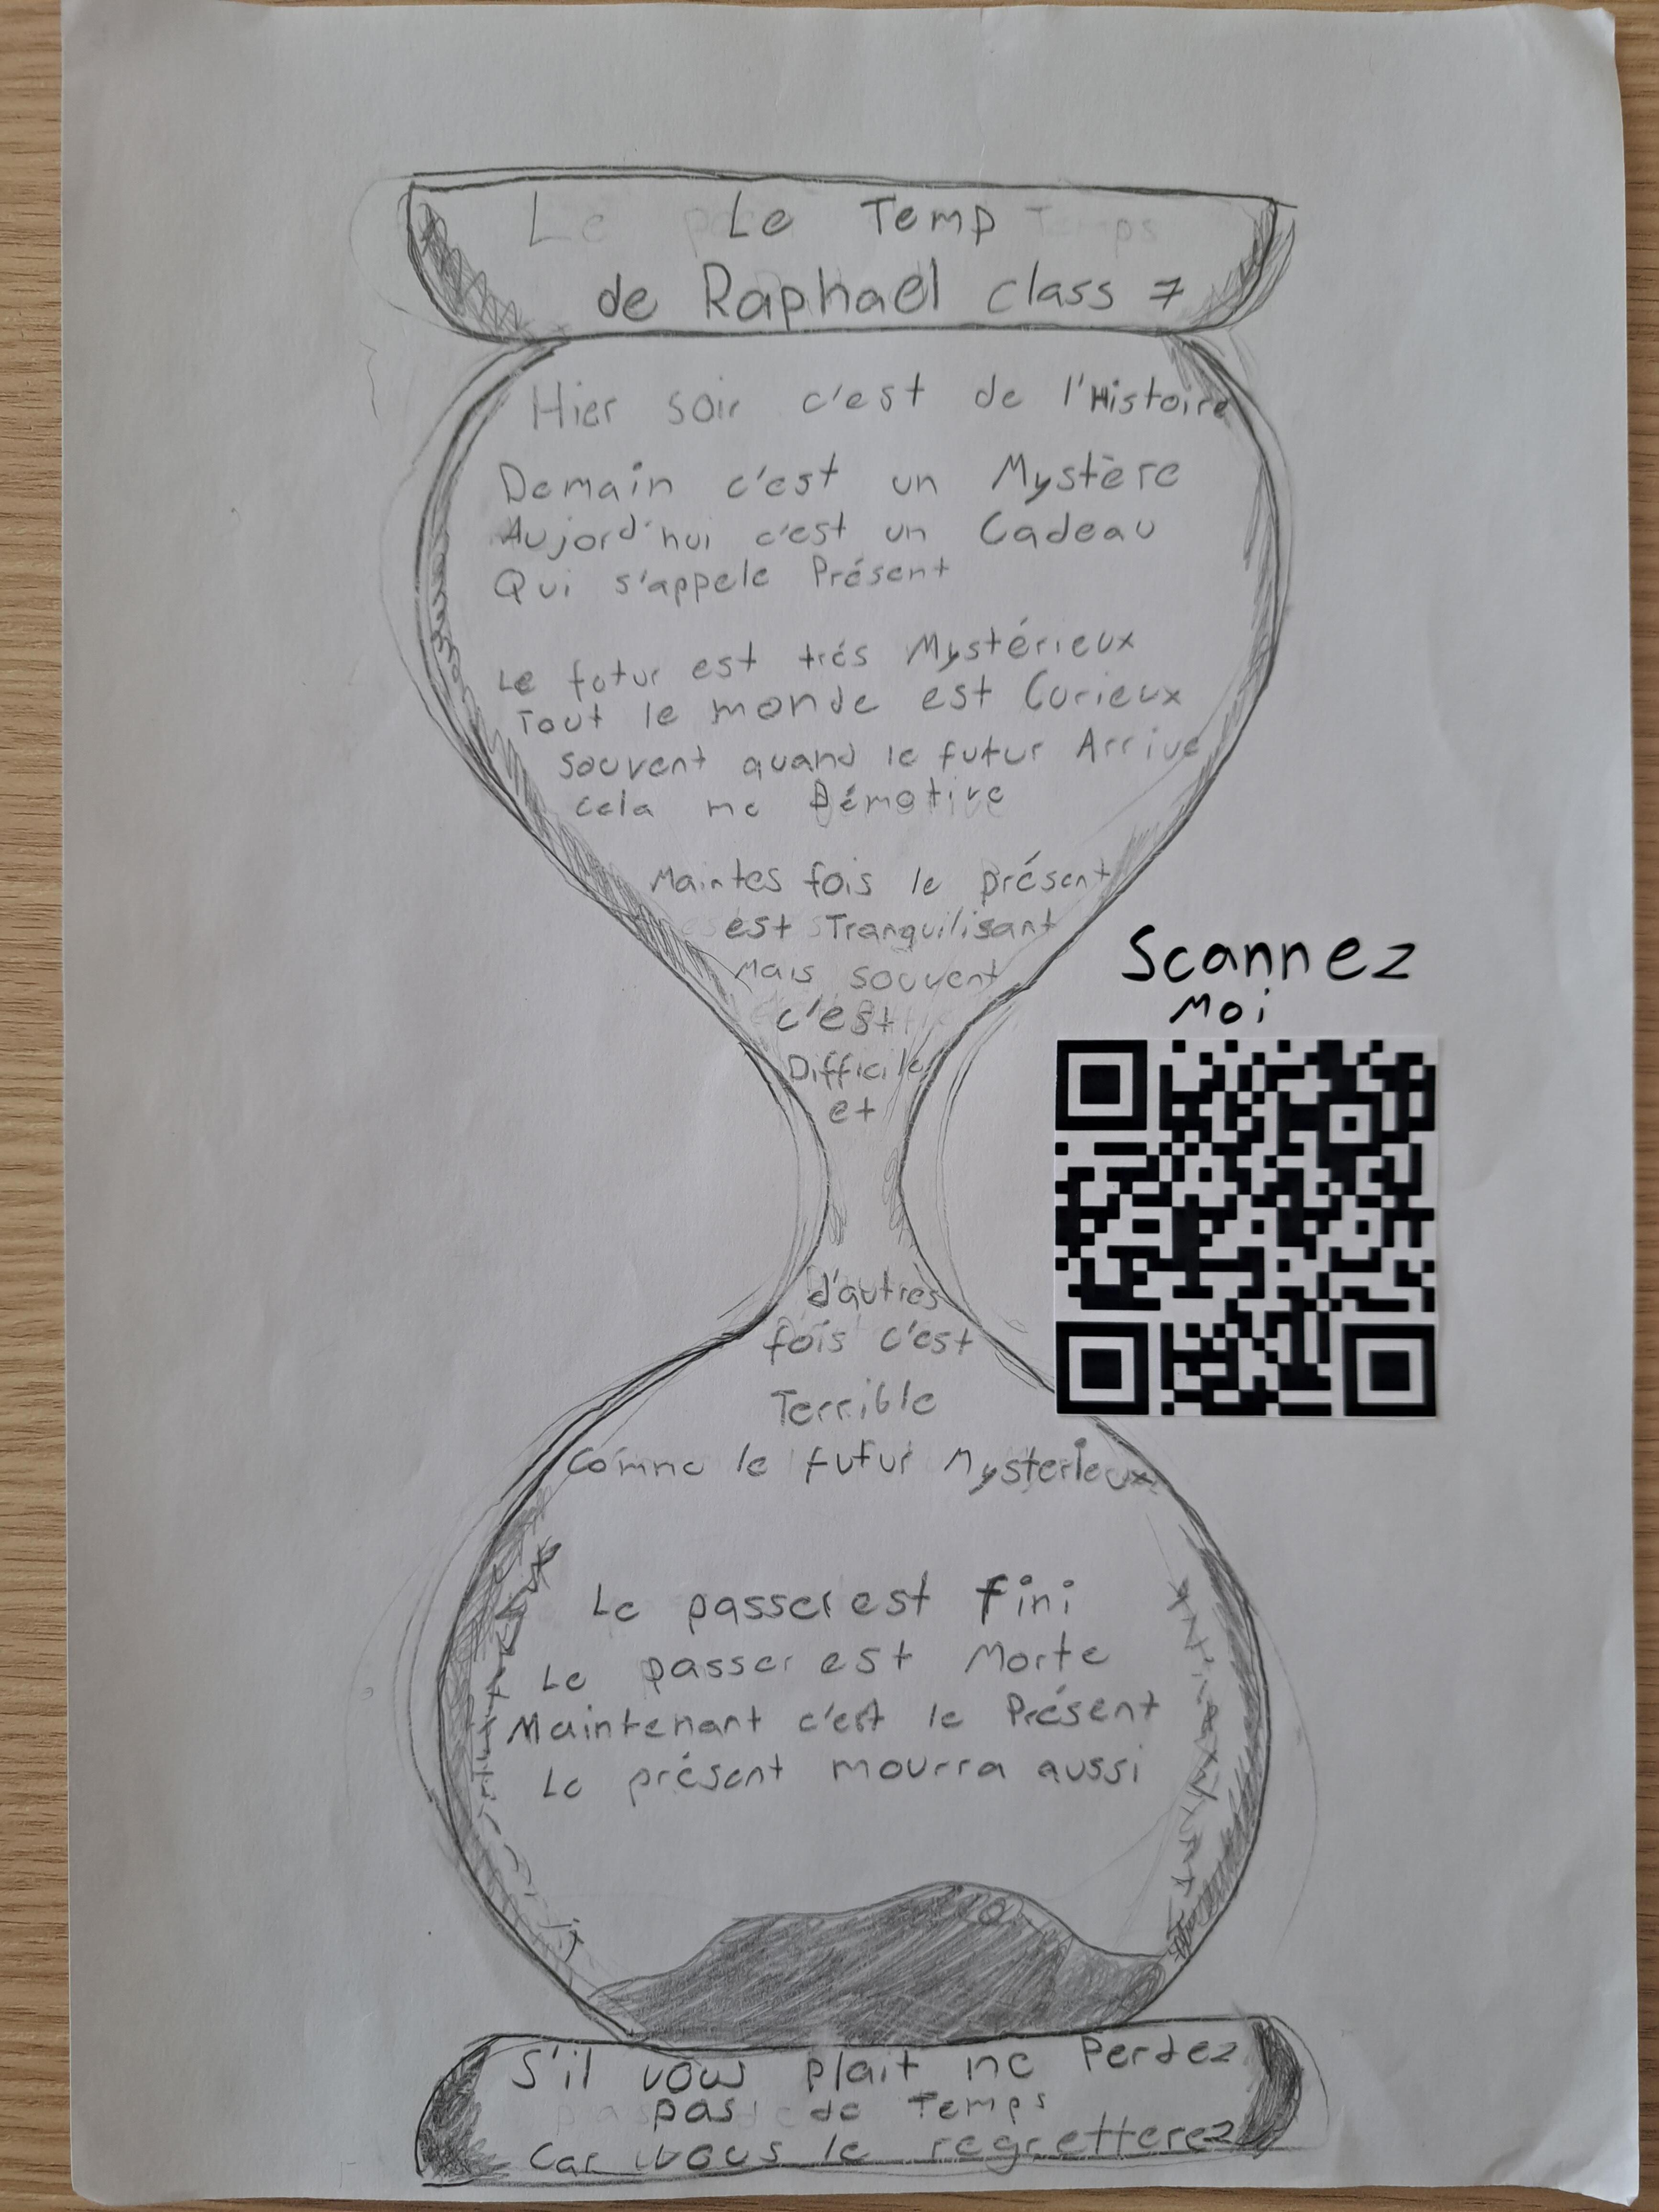 Le Temp
de Raphaël class 7
Hier soir c'est de l'Histoire
Demain c'est un Mystère
Aujord'hui c'est un Cadeau
Qui s'appele Présent
Le futur est trés Mystérieux
Tout le monde est Curieux
Souvent quand le futur Arrive
cela me Démotive
Maintes fois le présent
est Tranquilisant
Mais souvent
c'est
Difficile
et
d'autres
fois c'est
Terrible
Comme le futur Mysterieux
Le passer est fini
Le passer est Morte
Maintenant c'est le Présent
Le présent mourra aussi
S'il vous plait ne Perdez
pas de Temps
Car vous le regretterez
Scannez
Moi